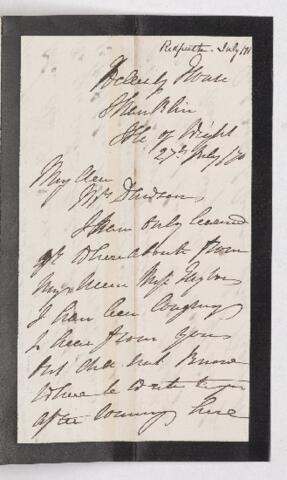 July
House
Shanklin
Isle of Wight
27th July
My dear
Mrs Davidson
I have only learned
yr whereabouts from
my niece Miss
I have been longing
to hear from you
but did not know
where to write to you
after coming here